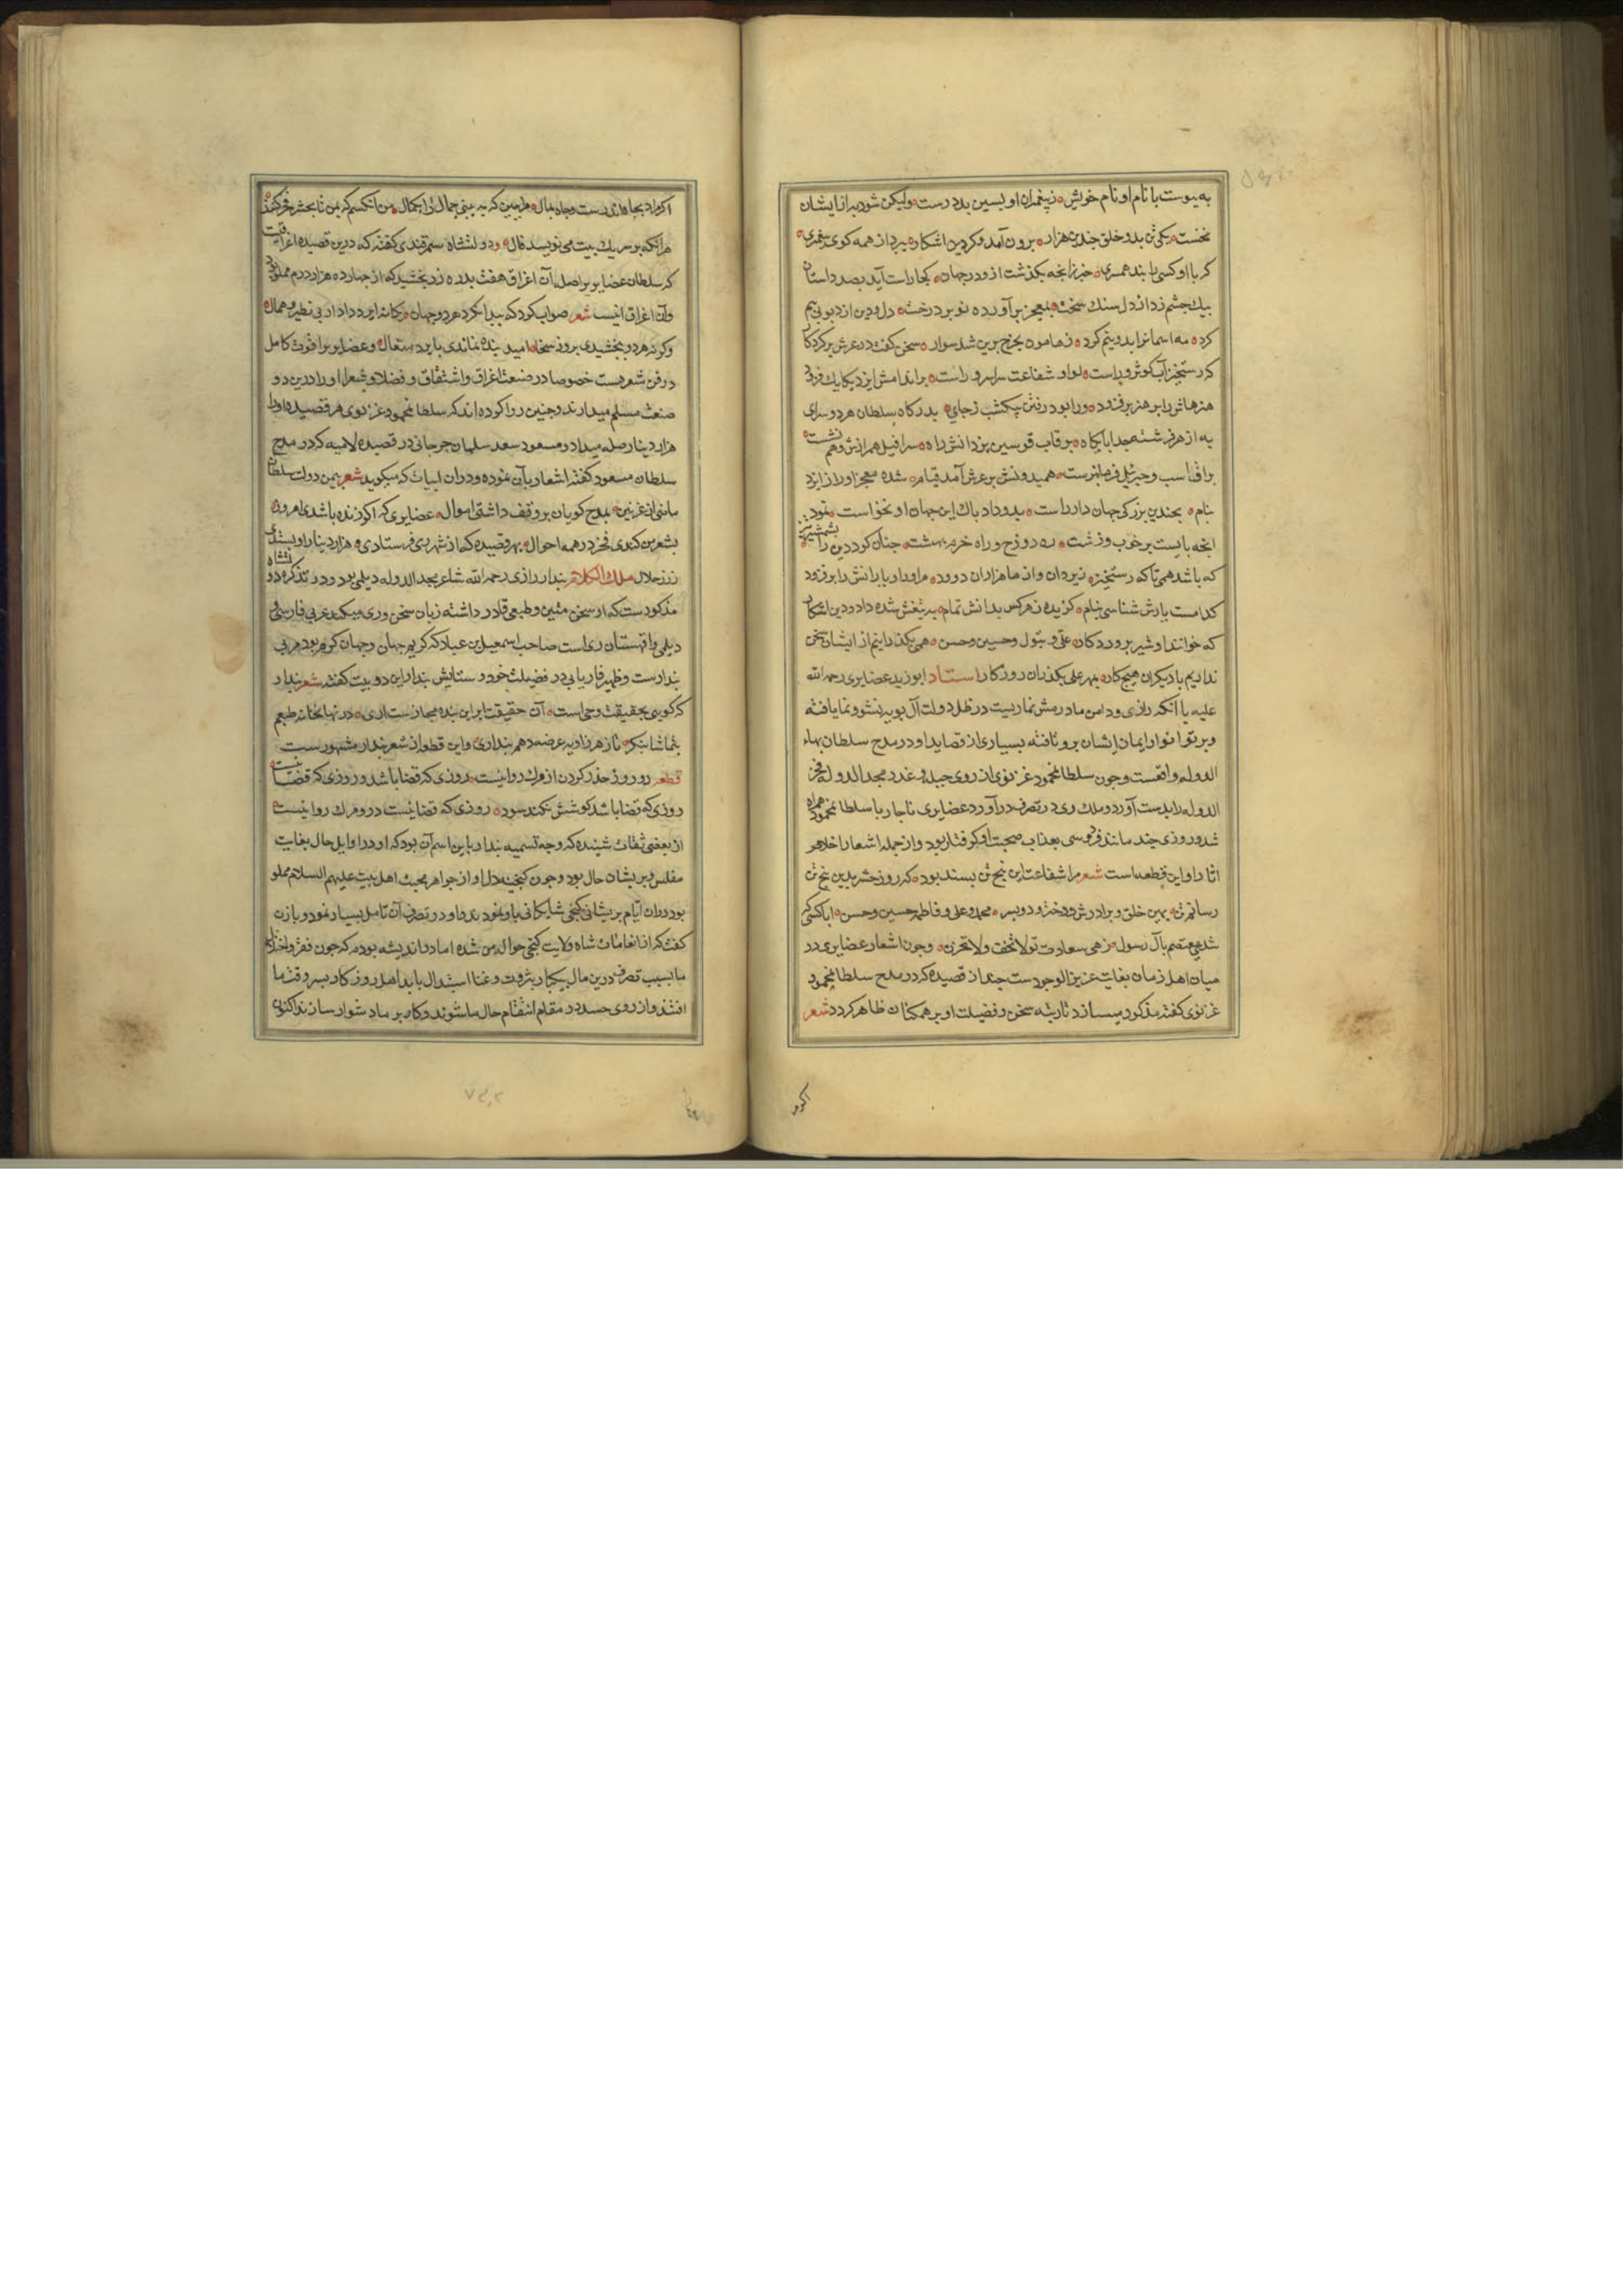 به پیوست با نام او نام خویش ز پیغمبران او پسین بد درست ولیکن شود بر از ایشان
نخست یکی تن بد و خلق چندین هزار برون آمد و کرد دین اشکار ببرد از همه کوی پیغمبری
کر با او کسی را بند همسری خبر زانچه بگذشت از ود رجهان کجا راست آید بصد داستان
بیک چشم زد از دل سنک سخت بمعجز برآورده نوبر درخت دل و دین از دیو بی بیم
کرد مه اسمانرا بدو نیم کرد ز هامون بچرخ برین شد سوار سخن کفت در عرش بر کردکار
که رستخیز آب کوثر وراست لوا و شفاعت سراسر وراست بر اندامش ایزد یکایک فزود
هنرهاش را بر هنر برفزود ورا بود رفتن بیکشب ز جای بدرکاه سلطان هر دو سرای
به از هر فرشته بد ابایکاه بر قاب قوسین یزدانش راه سرافیل همرازش و هم نشست
براق اسب و جبرئیل فرمانبرست همیدونش بر عرش آمد قیام شده معجز او را از ایزد
بنام بچندین بزرکی جهان دار راست بدو داد پاک این جهان او نخواست نمود
انچه بایست بر خوب و زشت ره دوزخ و راه خرم بهشت چنان کرد دین را بشمشیر تیز
که باشد همی تا که رستخیز ز یزدان و از ما هزاران درود مر او را و یارانش را بر فزود
کدامست یارش شناسی بنام کزیده ز هر کس بدانش تمام به تیغش شده داد و دین اشکار
که خوانند او شیر پروردکار علی و بتول و حسین و حسن همی بکذرانیم از ایشان سخن
نداریم با دیکران هیچ کار بمهر علی بکذران روزکار استاد ابو زید عضایری رحمه الله
علیه با انکه رازی و دامن مادر مش نماز بیست در ظل دولت آل بویه نشو و نما یافته
و پرتو انوار ایمان ایشان برو تافته بسیاری از قصاید او در مدح سلطان بهاء
الدوله واقعست و چون سلطان محمود غزنوی از روی حیله و غدر مجد الدوله فخر
الدوله را بدست آورد و ملک ری در تصرف درآورد عضایری ناچار با سلطان محمود همراه
شد و روزی چند مانند فردوسی بعذاب صحبت او کرفتار بود و از جمله اشعار اخلاص
اثار او این قطعه است شعر مرا شفاعت این پنج تن بسند بود که روز حشر بدین پنج تن
رسانم تن بهین خلق و برادرش و دختر و دو پسر محمد و علی و فاطمه حسین و حسن ایا کسی که
شدی معتصم بآل رسول زهی سعادت تو لا تخف و لا تحزن و چون اشعار عضایری در
میان اهل زمان بغایت عزیز الوجودست چند از قصیده که در مدح سلطان محمود
غزنوی کفته مذکور میسازد تا رتبه سخن و فضیلت او بر همکنان ظاهر کردد شعر
اکر
اکر مراد بجاه اندرست و جاه بمال مرا ببین که به بینی جمال را بکمال من انکسم که بمن تا بحشر فخر کند
هر انکه بر سر یک بیت می نویسد قال و دولتشاه سمرقندی کفته که درین قصیده اغراقیست
که سلطان عضایری را صله آن اغراق هفت بدره زر بخشید که از چهارده هزار درم مملو بود
و آن اغراق اینست شعر صواب کرد که پیدا نکرد هر دو جهان یکانه ایزد دادار بی نظیر و همال
وکرنه هر دو بخشیدی بروز سخا امید بنده نماندی بایزد متعال و عضایری را قوت کامل
در فن شعر هست خصوصا در صنعت اغراق و اشتقاق و فضلا و شعرا او را درین دو
صنعت مسلم میدارند و چنین روا کرده اند که سلطان محمود غزنوی هر قصیده او را
هزار دینار صله میداد و مسعود سعد سلمان جرجانی در قصیده لامیه که در مدح
سلطان مسعود کفته اشعار بآن نموده و در ان ابیات که میکوید شعر یمین دولت سلطان
ماضی از غزنین بمدح کویان بر وقف داشتی اموال عضایری که اکر زنده باشدی امروز
بشعر من کندی فخر در همه احوال بهر قصیده که از شهر ری فرستادی هزار دینار او بستدی
ز زر حلال ملک الکلام بندار رازی رحمه الله شاعر مجد الدوله دیلمی بود و در تذکره دولتشاه
مذکورست که او سخن متین و طبعی قادر داشته زبان سخن وری میکند عربی فارسی و
دیلمی و از قهستان ری است صاحب اسمعیل بن عباد که کریم جهان و جهان کرم بود مربی
بندارست و ظهیر فاریابی در فضیلت خود و ستایش بندار این دو بیت کفته شعر بندار
که کویی بحقیقت وحی است آن حقیقت تا بر این بنده مجاز ست اری در نهانخانه طبعم
بتماشا بنکر تا ز هر زاویه عرضه دهم بنداری و این قطعه از شعر بندار مشهور ست
قطعه دو روز حذر کردن از مرک روا نیست روزی که قضا باشد و روزی که قضا نیست
روزی که قضا باشد کوشش نکند سود روزی که قضا نیست درو مرک روا نیست
از بعضی ثقات شنیده که وجه تسمیه بندار باین اسم آن بود که او در اوایل حال بغایت
مفلس و پریشان حال بود و چون کنجینه دل او از جواهر محبت اهل بیت علیهم السلام مملو
بود در ان ایام پریشانی کنجی شایکانی باو نمودند و او در تصرف آن تامل بسیار نمود و با زن
کفت که از انعامات شاه ولایت کنجی حواله من شده اما در اندیشه بودم که چون فقر و اختلال
ما بسبب تصرف درین مال بیکبار بثروت و غنا استبدال یابد اهل روزکار بسر وقت ما
افتند و از روی حسد در مقام انتقام حال ما شوند و کار بر ما دشوار سازند اکنون